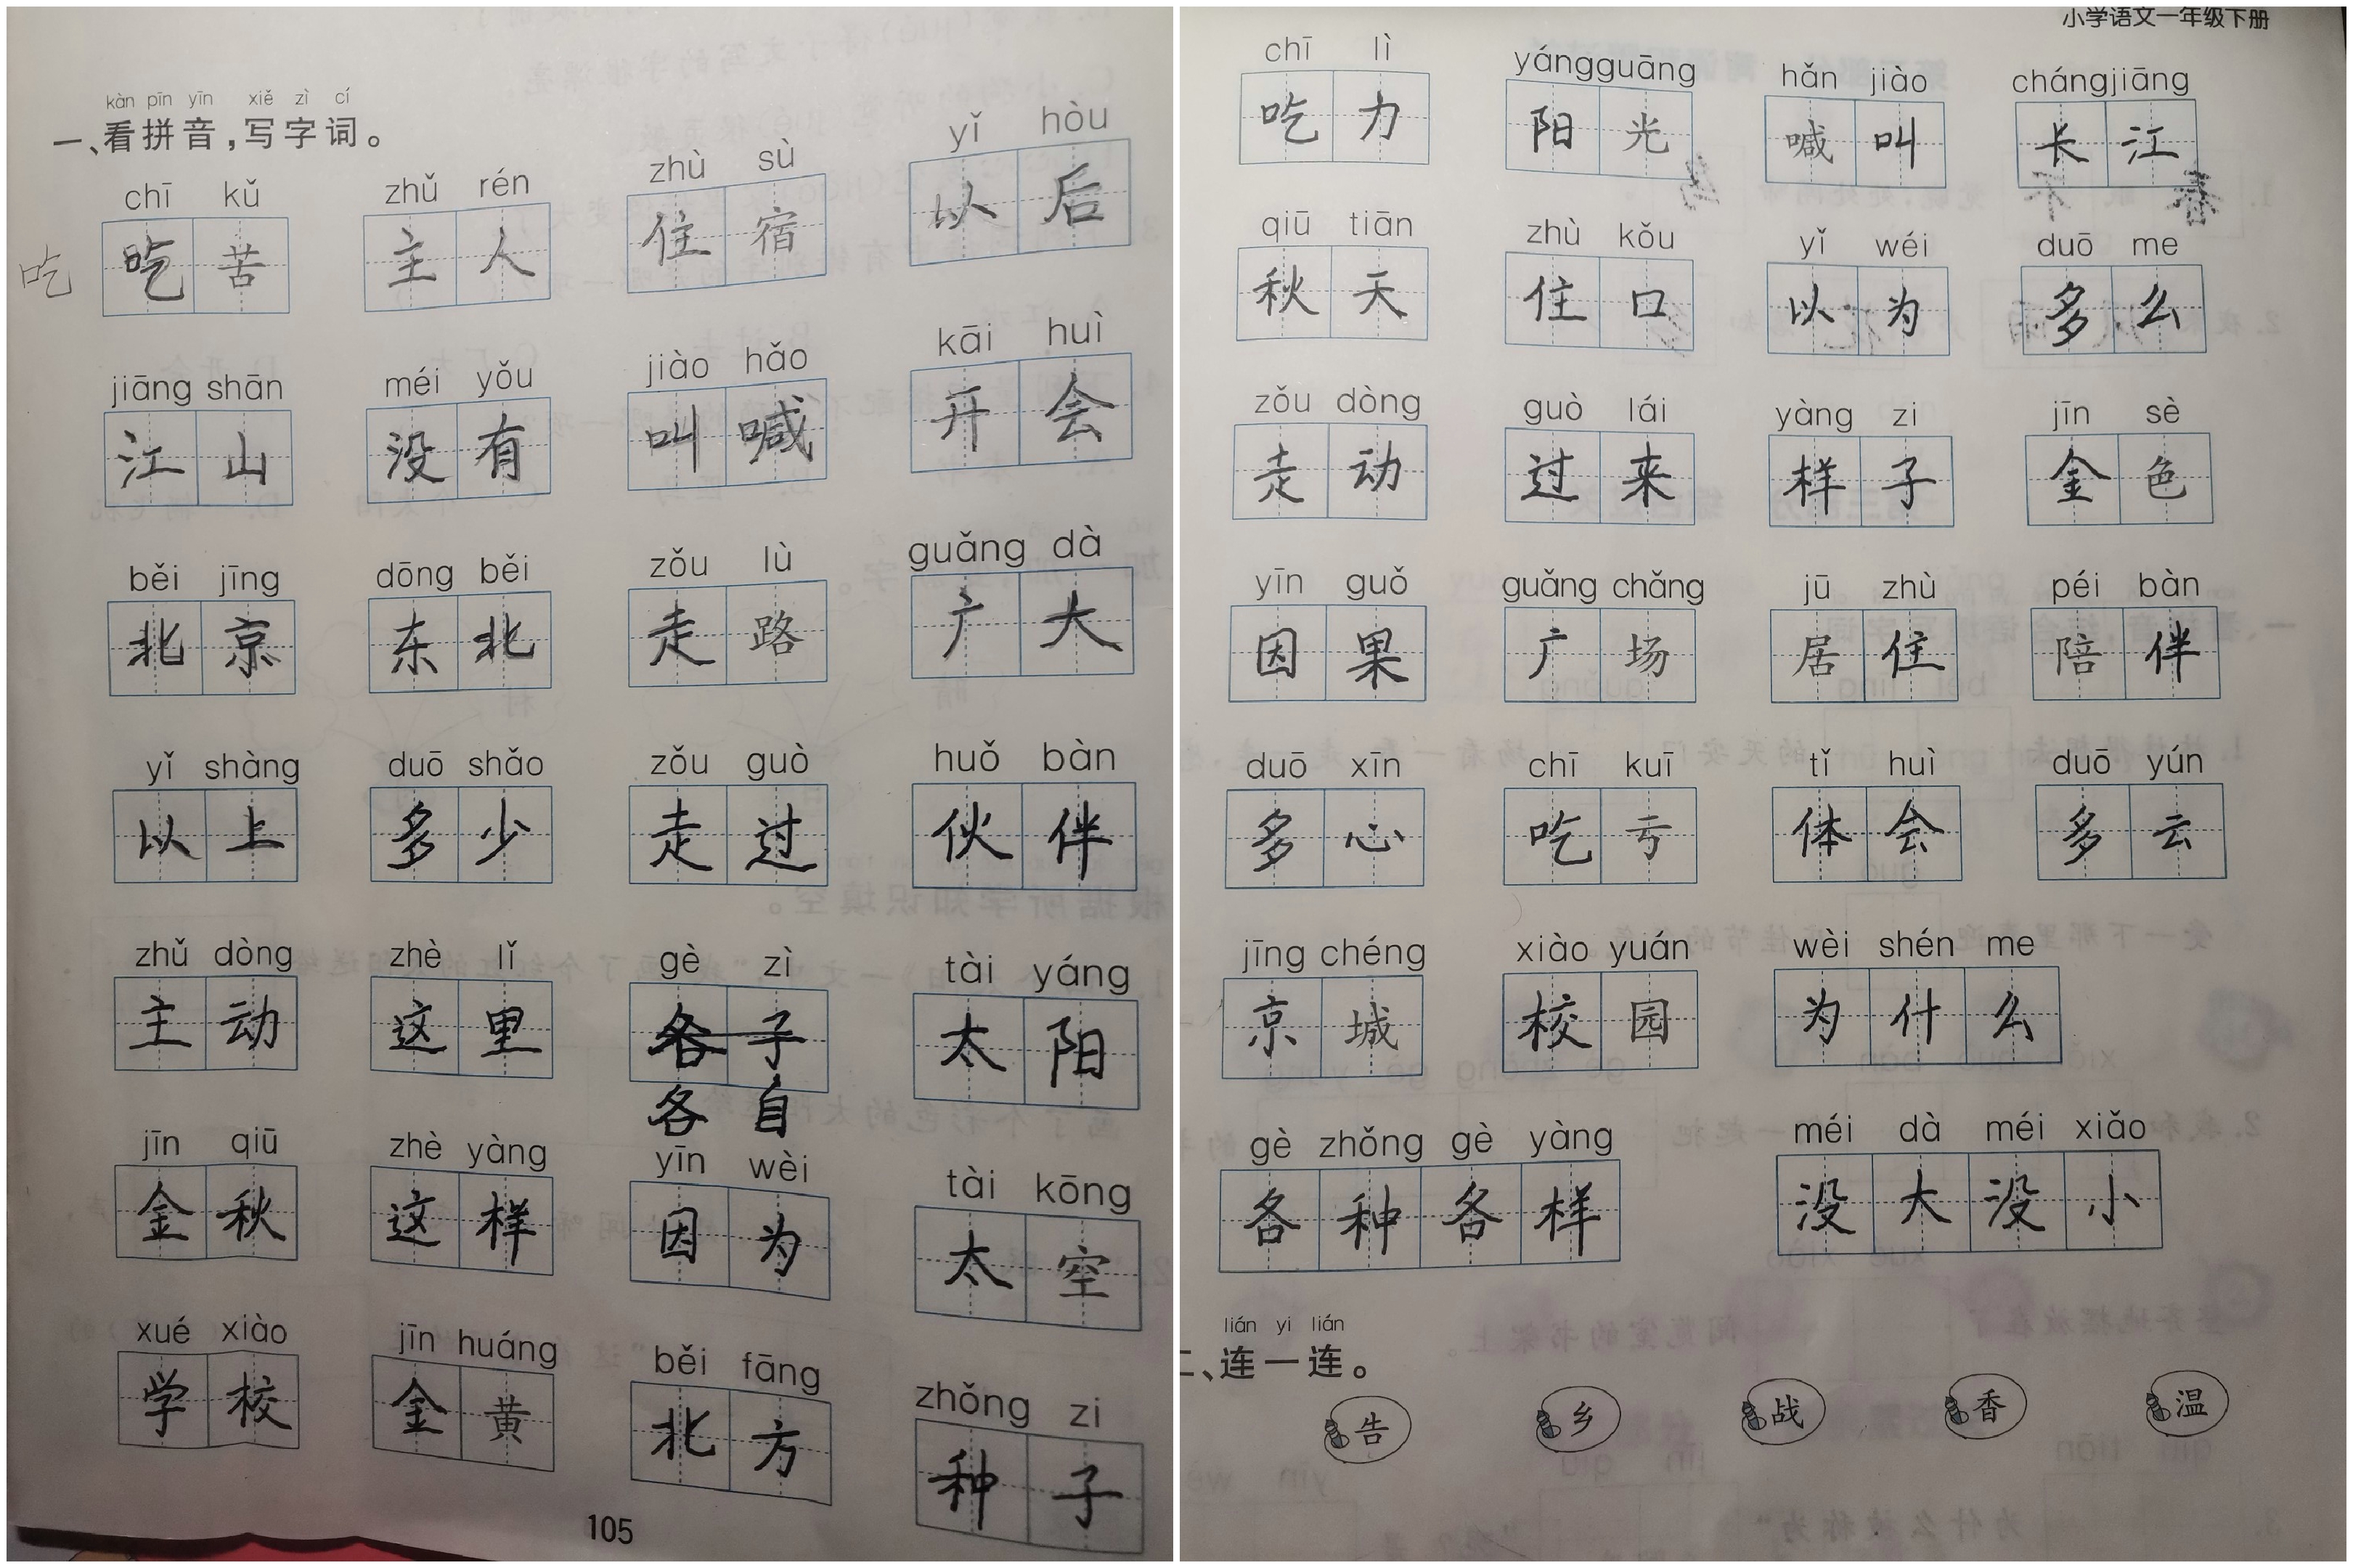 kàn pīn yīn xiě zì cí
一、看拼音，写字词。
chī kǔ zhǔ rén zhù sù yǐ hòu
吃 吃苦 主人 住宿 以后
jiāng shān méi yǒu jiào hǎo kāi huì
江山 没有 叫喊 开会
běi jīng dōng běi zǒu lù guǎng dà
北京 东北 走路 广大
yǐ shàng duō shǎo zǒu guò huǒ bàn
以上 多少 走过 伙伴
zhǔ dòng zhè lǐ gè zì tài yáng
主动 这里 各子 太阳
各自
jīn qiū zhè yàng yīn wèi tài kōng
金秋 这样 因为 太空
xué xiào jīn huáng běi fāng zhǒng zi
学校 金黄 北方 种子
105
小学语文一年级下册
chī lì yángguāng hǎn jiào chángjiāng
吃力 阳光 喊叫 长江
qiū tiān zhù kǒu yǐ wéi duō me
秋天 住口 以为 多么
zǒu dòng guò lái yàng zi jīn sè
走动 过来 样子 金色
yīn guǒ guǎng chǎng jū zhù péi bàn
因果 广场 居住 陪伴
duō xīn chī kuī tǐ huì duō yún
多心 吃亏 体会 多云
jīng chéng xiào yuán wèi shén me
京城 校园 为什么
gè zhǒng gè yàng méi dà méi xiǎo
各种各样 没大没小
lián yi lián
二、连一连。
告 乡 战 香 温